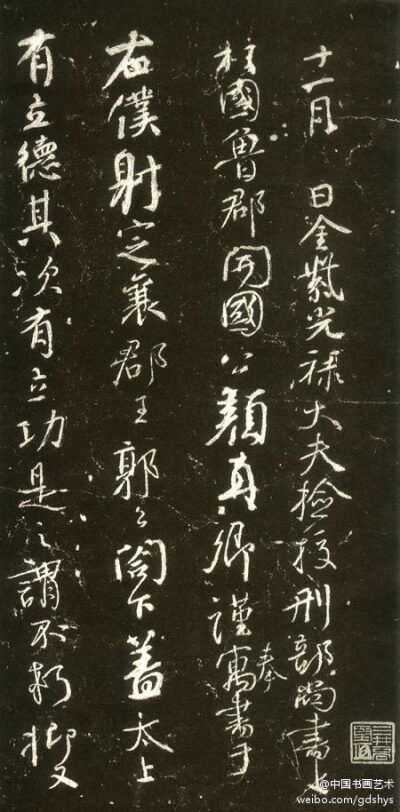 十一月 日金紫光禄大夫檢校刑部尚書上
柱國魯郡開國公顏真卿謹奉寓書于
右僕射定襄郡王郭公閣下蓋太上
有立德其次有立功是之謂不朽抑又
@中国书画艺术
weibo.com/gdshys